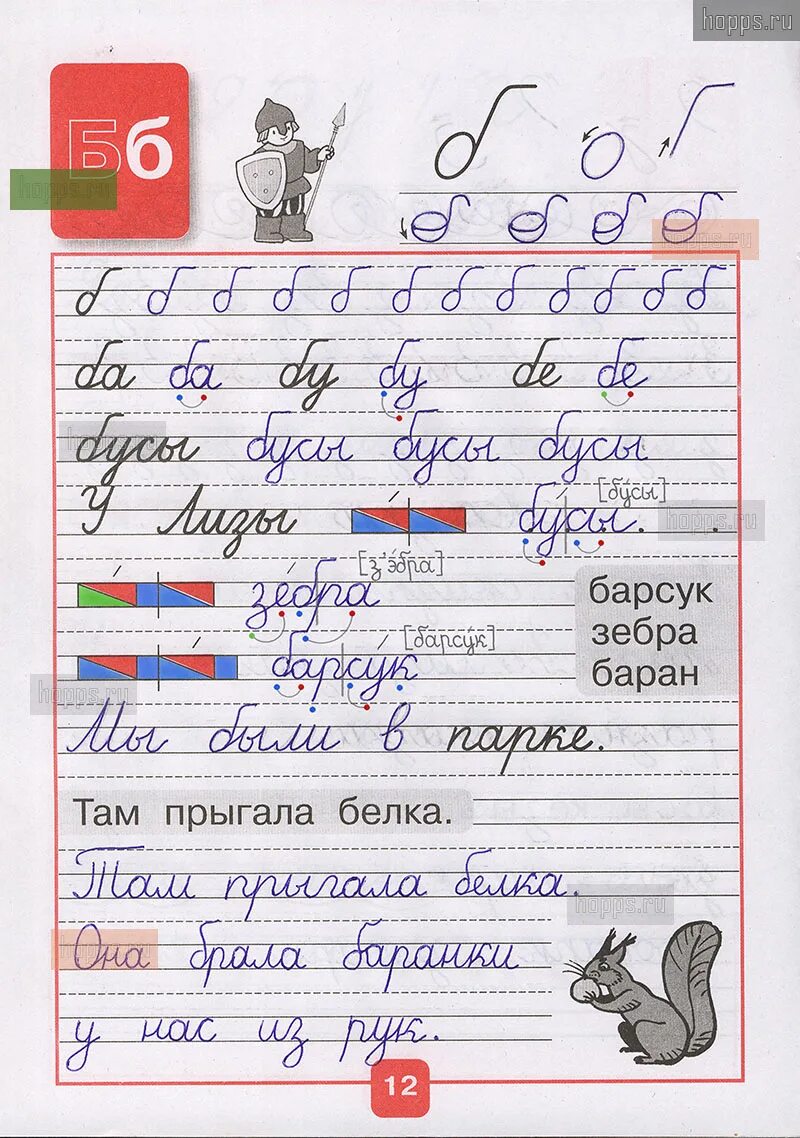 hopps.ru
Бб
hopps.ru
б
б б б б
hopps.ru
б б б б б б б б б б б
ба ба бу бу бе бе
бусы бусы бусы бусы
hopps.ru
[бу́сы]
У Лизы бусы.
hopps.ru
[з'э́бра]
зе́бра
барсук
зебра
баран
[барсу́к]
барсу́к
hopps.ru
Мы были в парке.
Там прыгала белка.
Там прыгала белка.
hopps.ru
Она брала баранки
hopps.ru
у нас из рук.
12